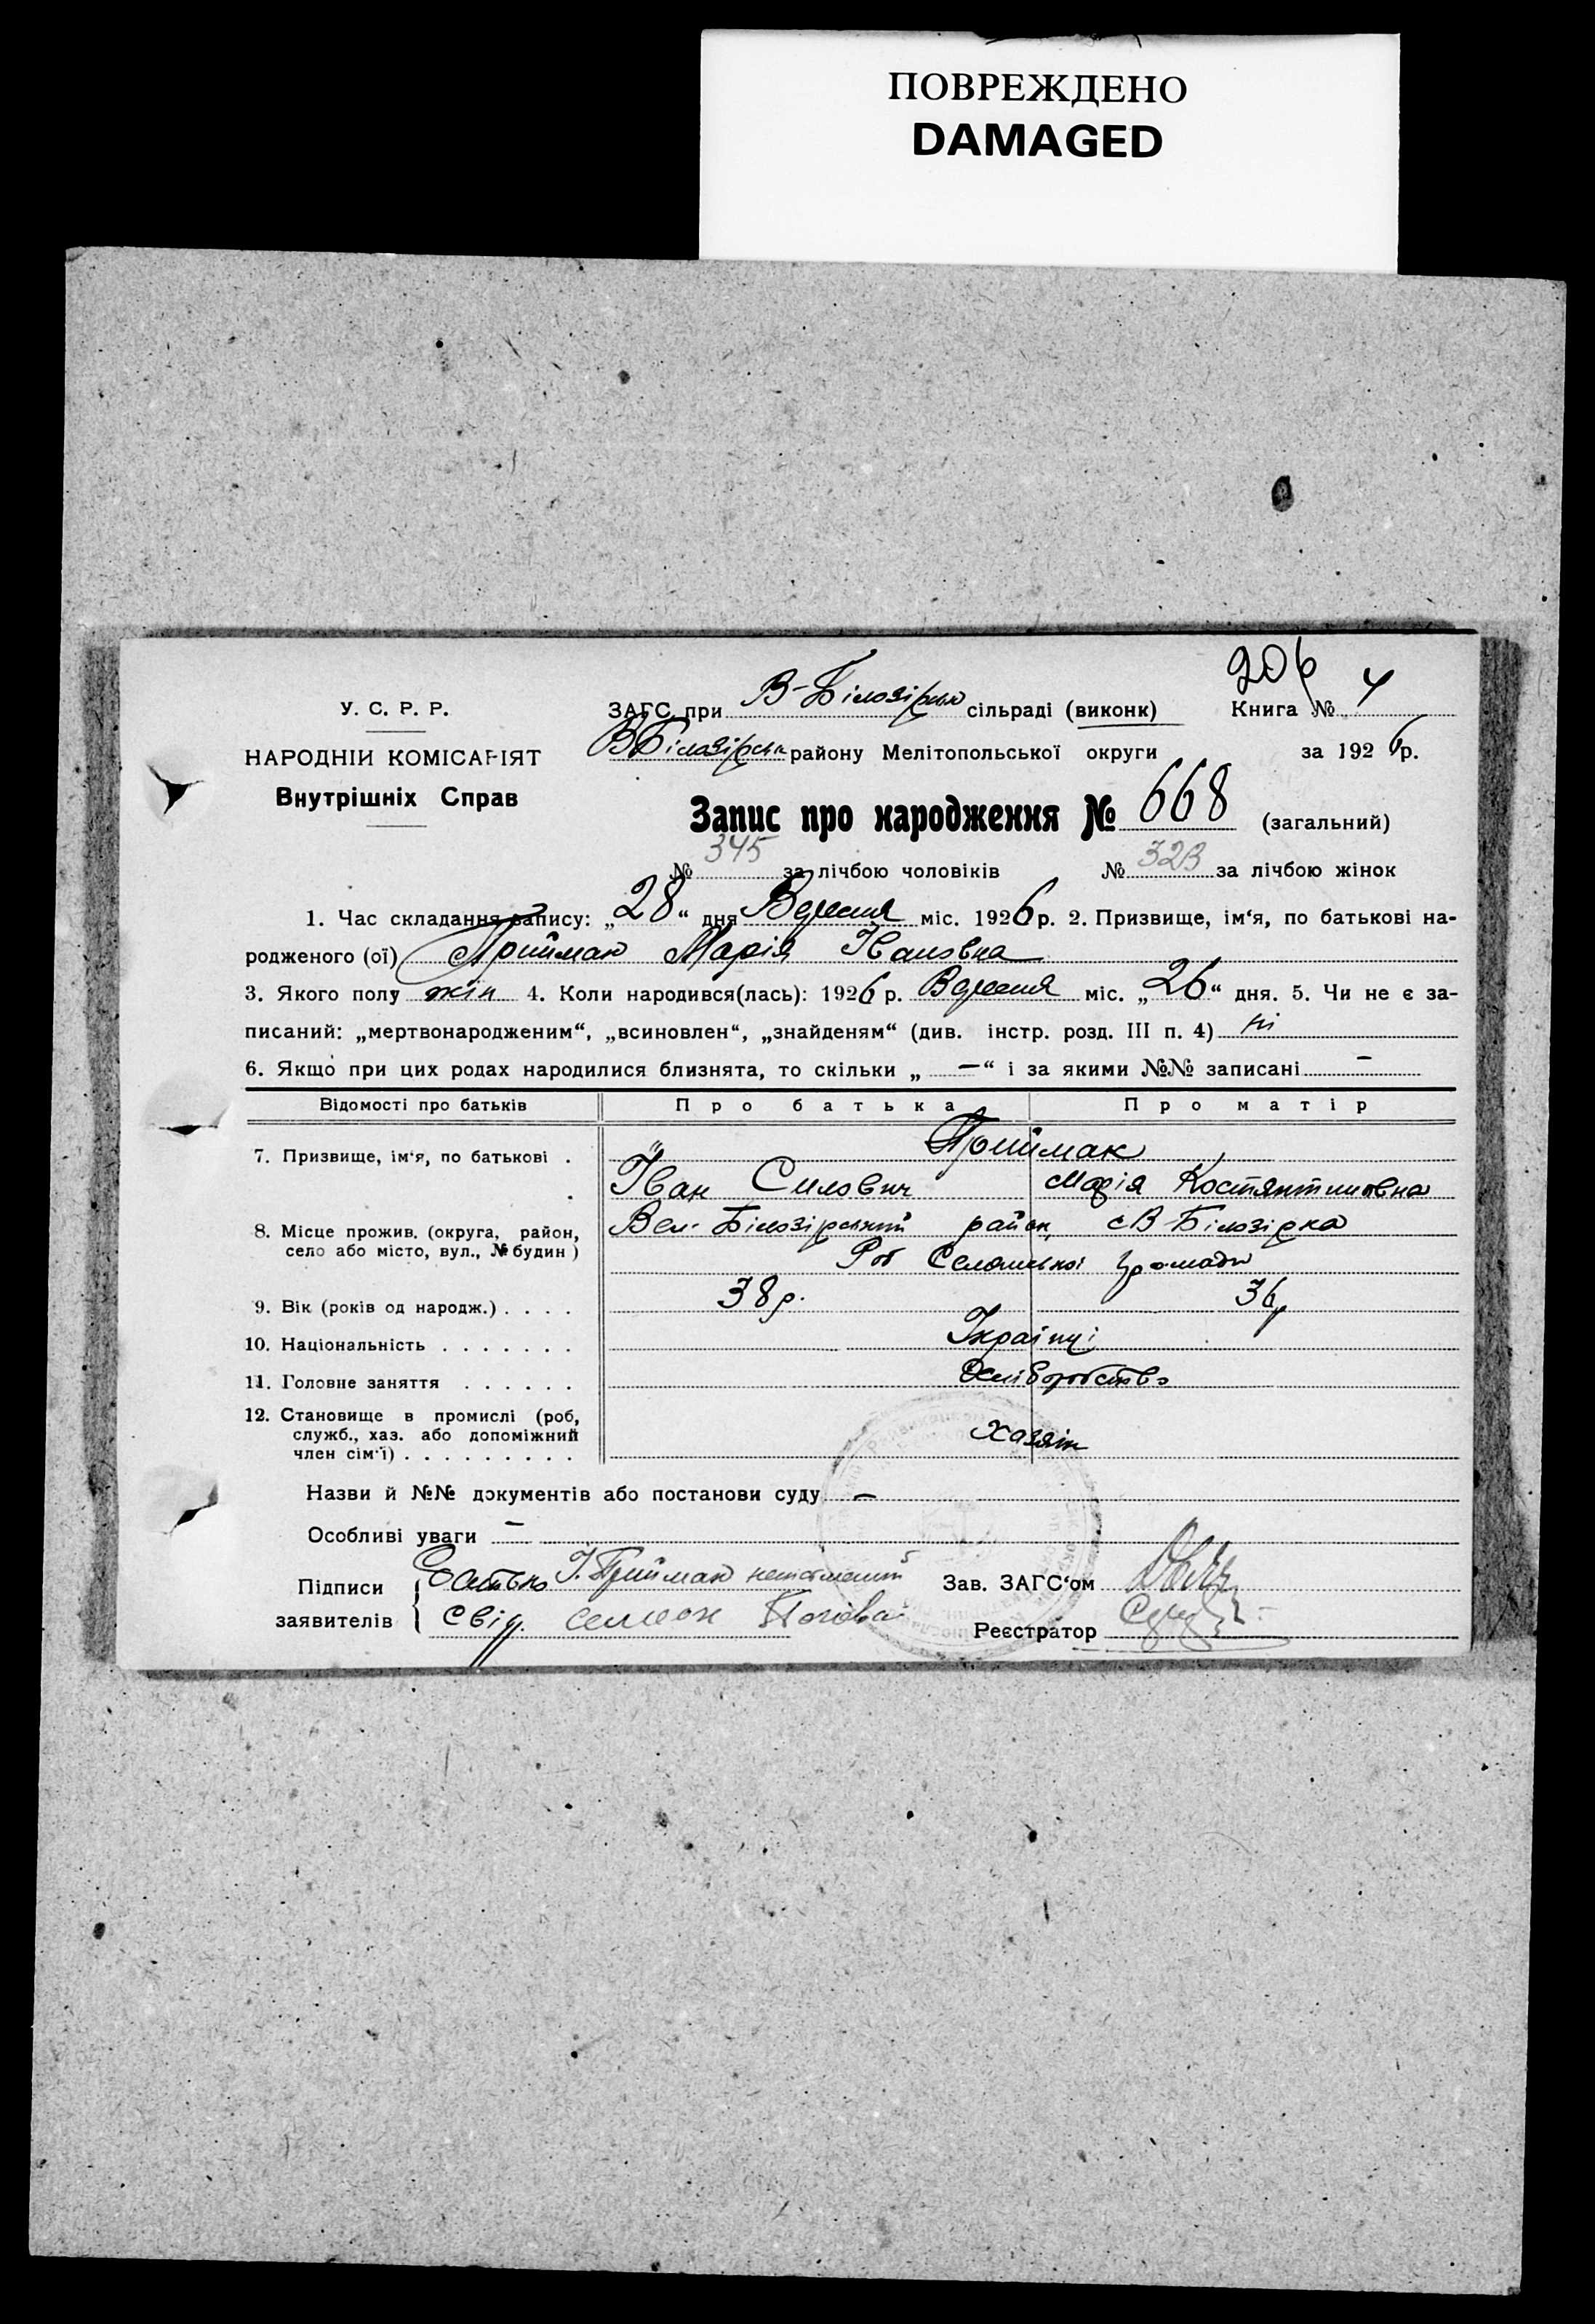 ПОВРЕЖДЕНО
DAMAGED
206
У. С. Р. Р.
НАРОДНІЙ КОМІСАРІЯТ
Внутрішніх Справ
ЗАГС при В-Білозірськ сільраді (виконк) Книга № 4
ВБілозірськ району Мелітопольської округи за 1926 р.
Запис про народження № 668 (загальний)
№ 345 за лічбою чоловіків № 323 за лічбою жінок
1. Час складання запису: „28“ дня Вересня міс. 1926 р. 2. Призвище, ім‘я, по батькові на-
родженого (ої) Приймак Марія Івановна
3. Якого полу жін 4. Коли народився(лась): 1926 р. Вересня міс. „26“ дня. 5. Чи не є за-
писаний: „мертвонародженим“, „всиновлен“, „знайденям“ (див. інстр. розд. III п. 4) ні
6. Якщо при цих родах народилися близнята, то скільки „ — “ і за якими №№ записані —
Відомості про батьків Про батька Про матір
7. Призвище, ім‘я, по батькові . Приймак
Іван Силович Марія Костянтиновна
8. Місце прожив. (округа, район, село або місто, вул., № будин) Вел-Білозірський район, с В-Білозірка
Селянської громади
9. Вік (років од народж.) . . . . 38 р. 36 р
10. Національність . . . . . . . Українці
11. Головне заняття . . . . . . Хліборобство
12. Становище в промислі (роб, служб., хаз. або допоміжний член сім‘ї) . . . . . . . . . Хазяїн
Назви й №№ документів або постанови суду —
Особливі уваги —
Підписи заявителів { Батько І. Приймак неписменний
Свід. Семен
Зав. ЗАГС‘ом
Реєстратор